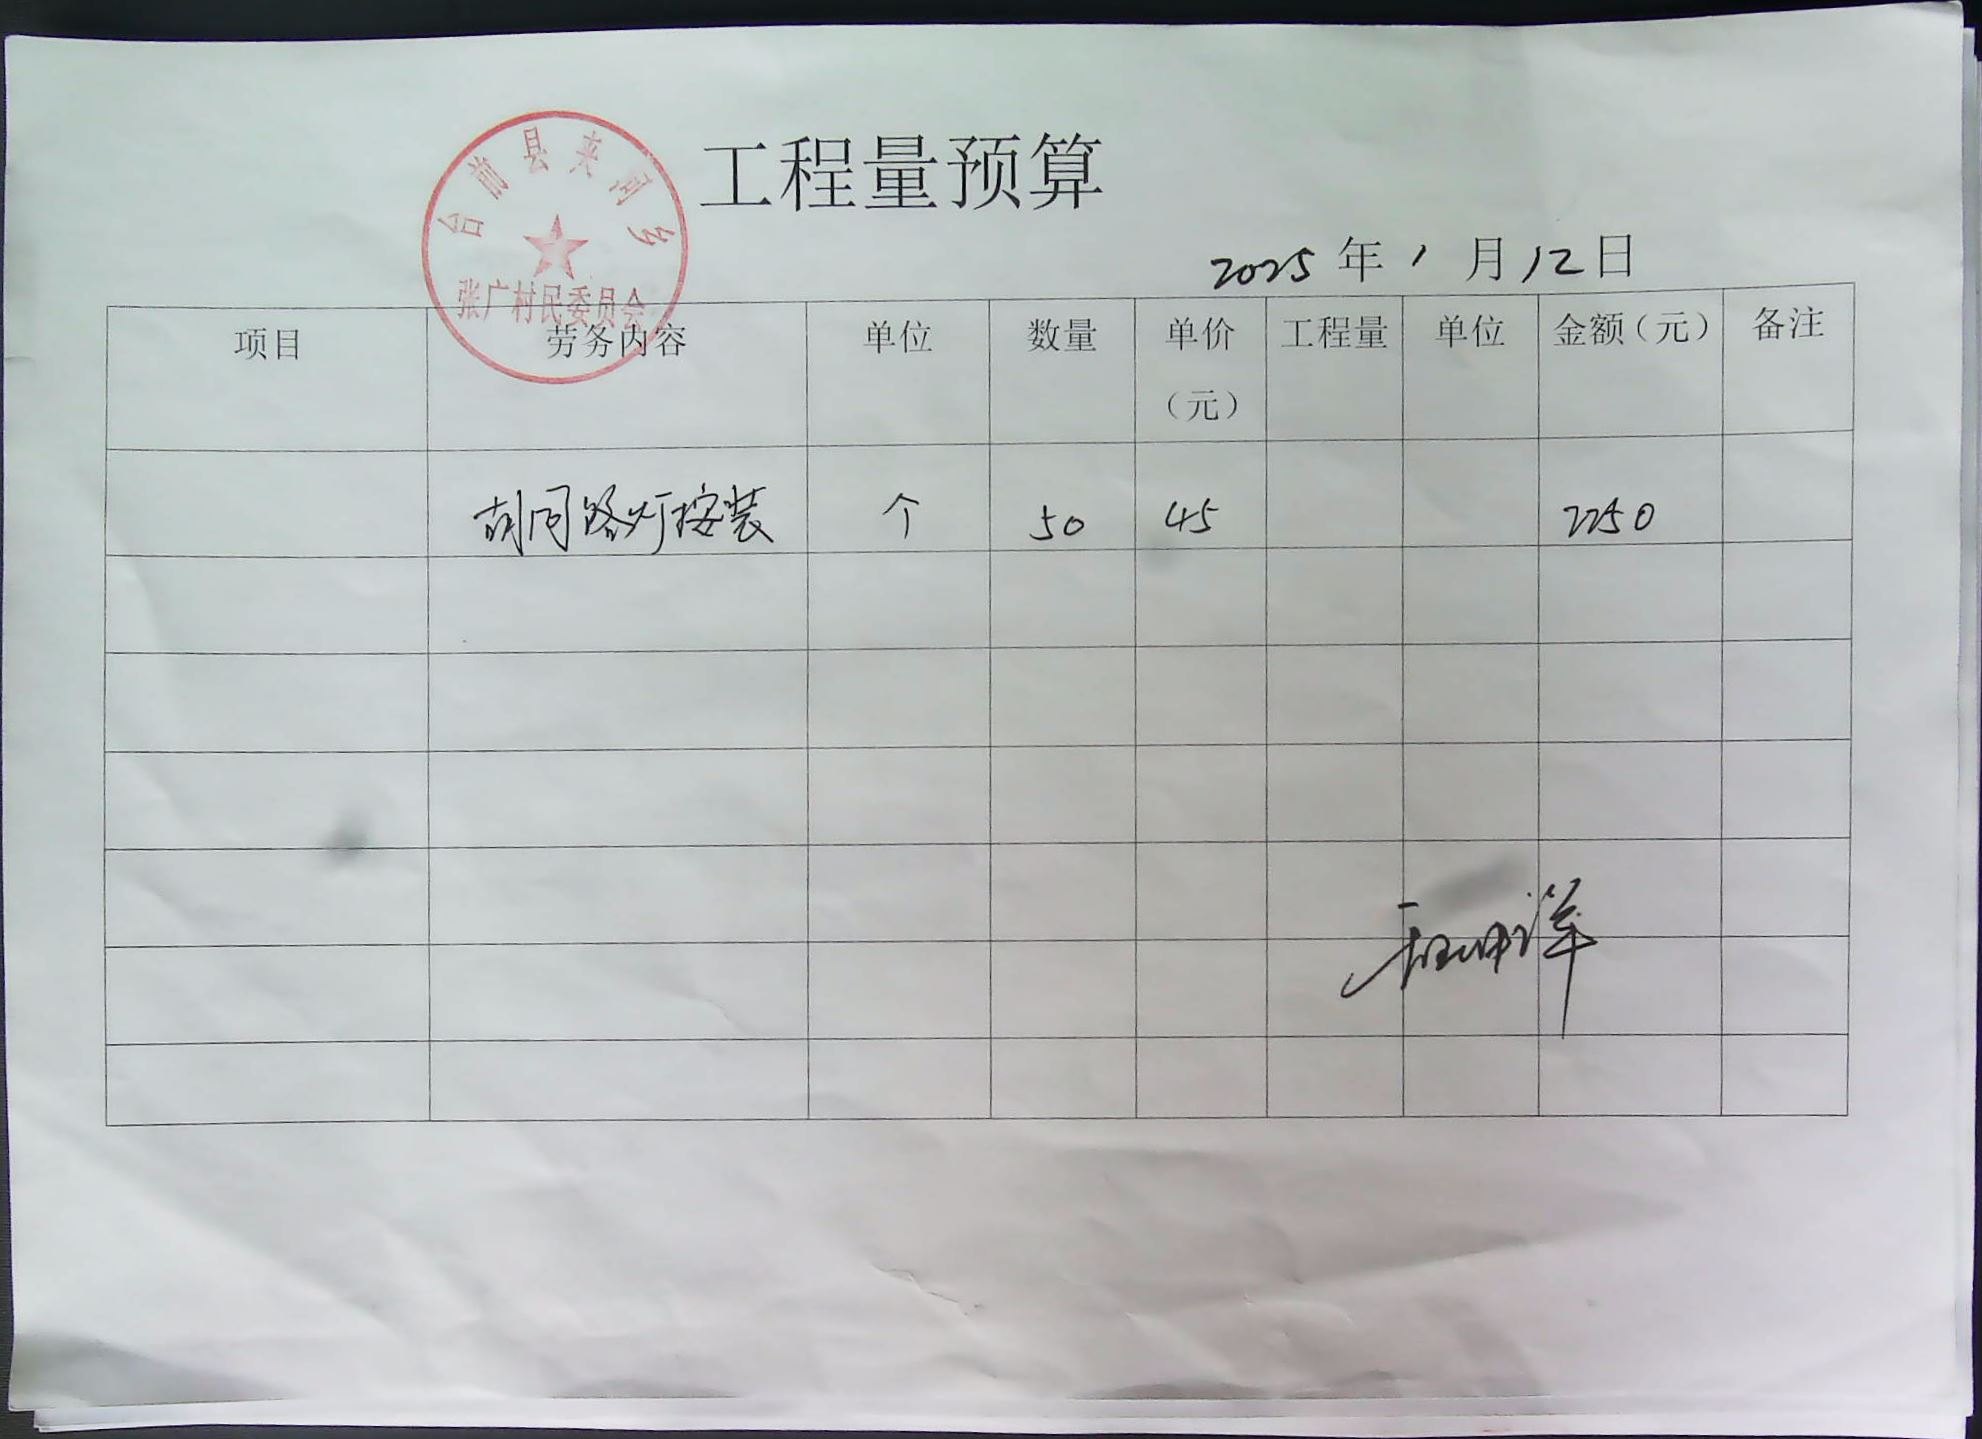 台前县夹河乡
张广村民委员会
工程量预算
2025年1月12日
项目 劳务内容 单位 数量 单价（元） 工程量 单位 金额（元） 备注
胡同路灯按装 个 50 45 2250